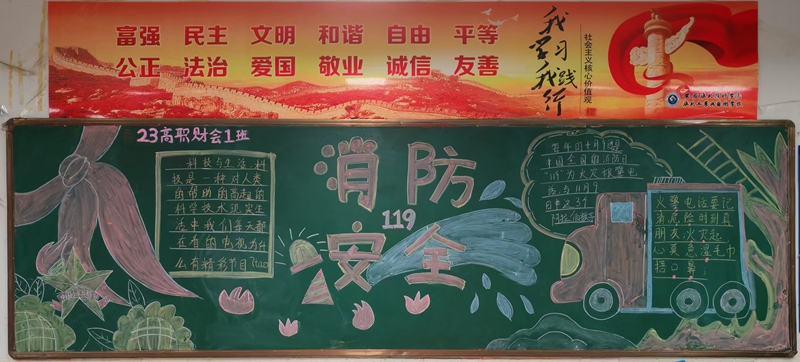 富强 民主 文明 和谐 自由 平等
公正 法治 爱国 敬业 诚信 友善
我学习 我践行
社会主义核心价值观
23高职财会1班
科技与生活 科
技是一种对人类
的帮助的高超的
科学技术 现实生
活中我们每天都
在看的电视为什
么有精彩节目
消防
119
安全
每年的11月9日
中国全国的消防日
"119"为火灾报警电
火警电话要记
清 危险时刻真
朋友 火灾起
心莫急 湿毛巾
捂口鼻